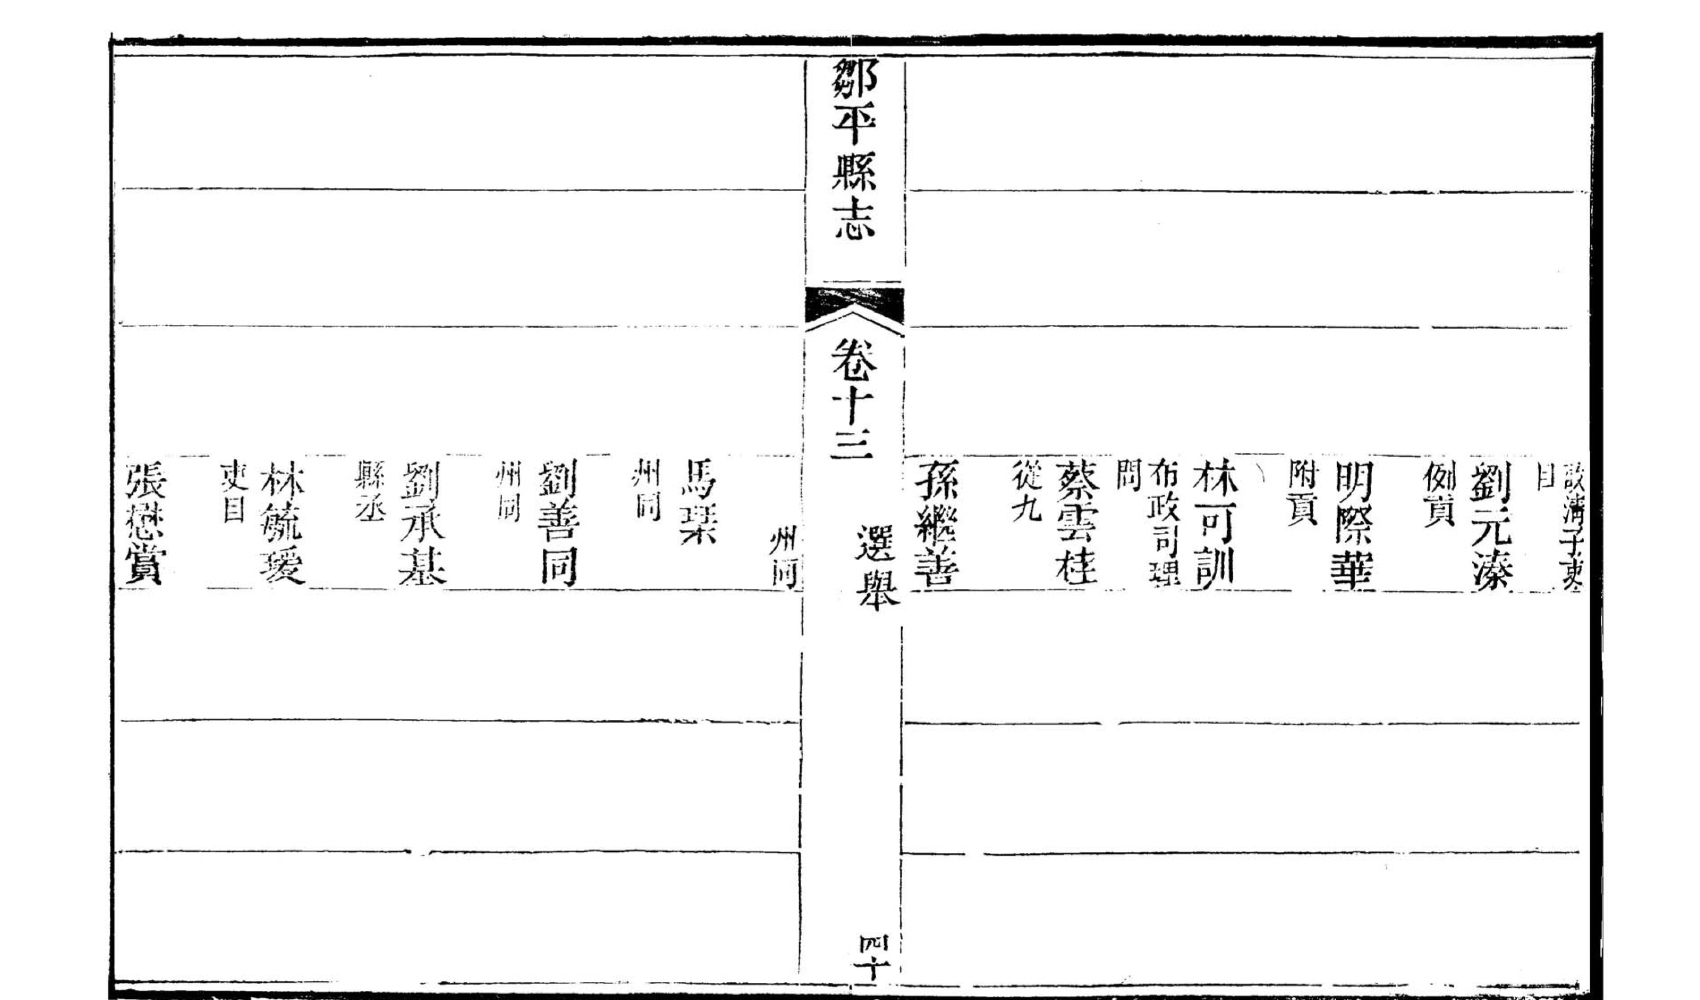 清子吏
目
劉元溱
例貢
明際華
附貢
林可訓
布政司理
問
蔡雲桂
從九
孫繼善
鄒平縣志
卷十三
選舉
四十
州同
馬琹
州同
劉善同
州同
劉承基
縣丞
林毓瑷
吏目
張懋賞